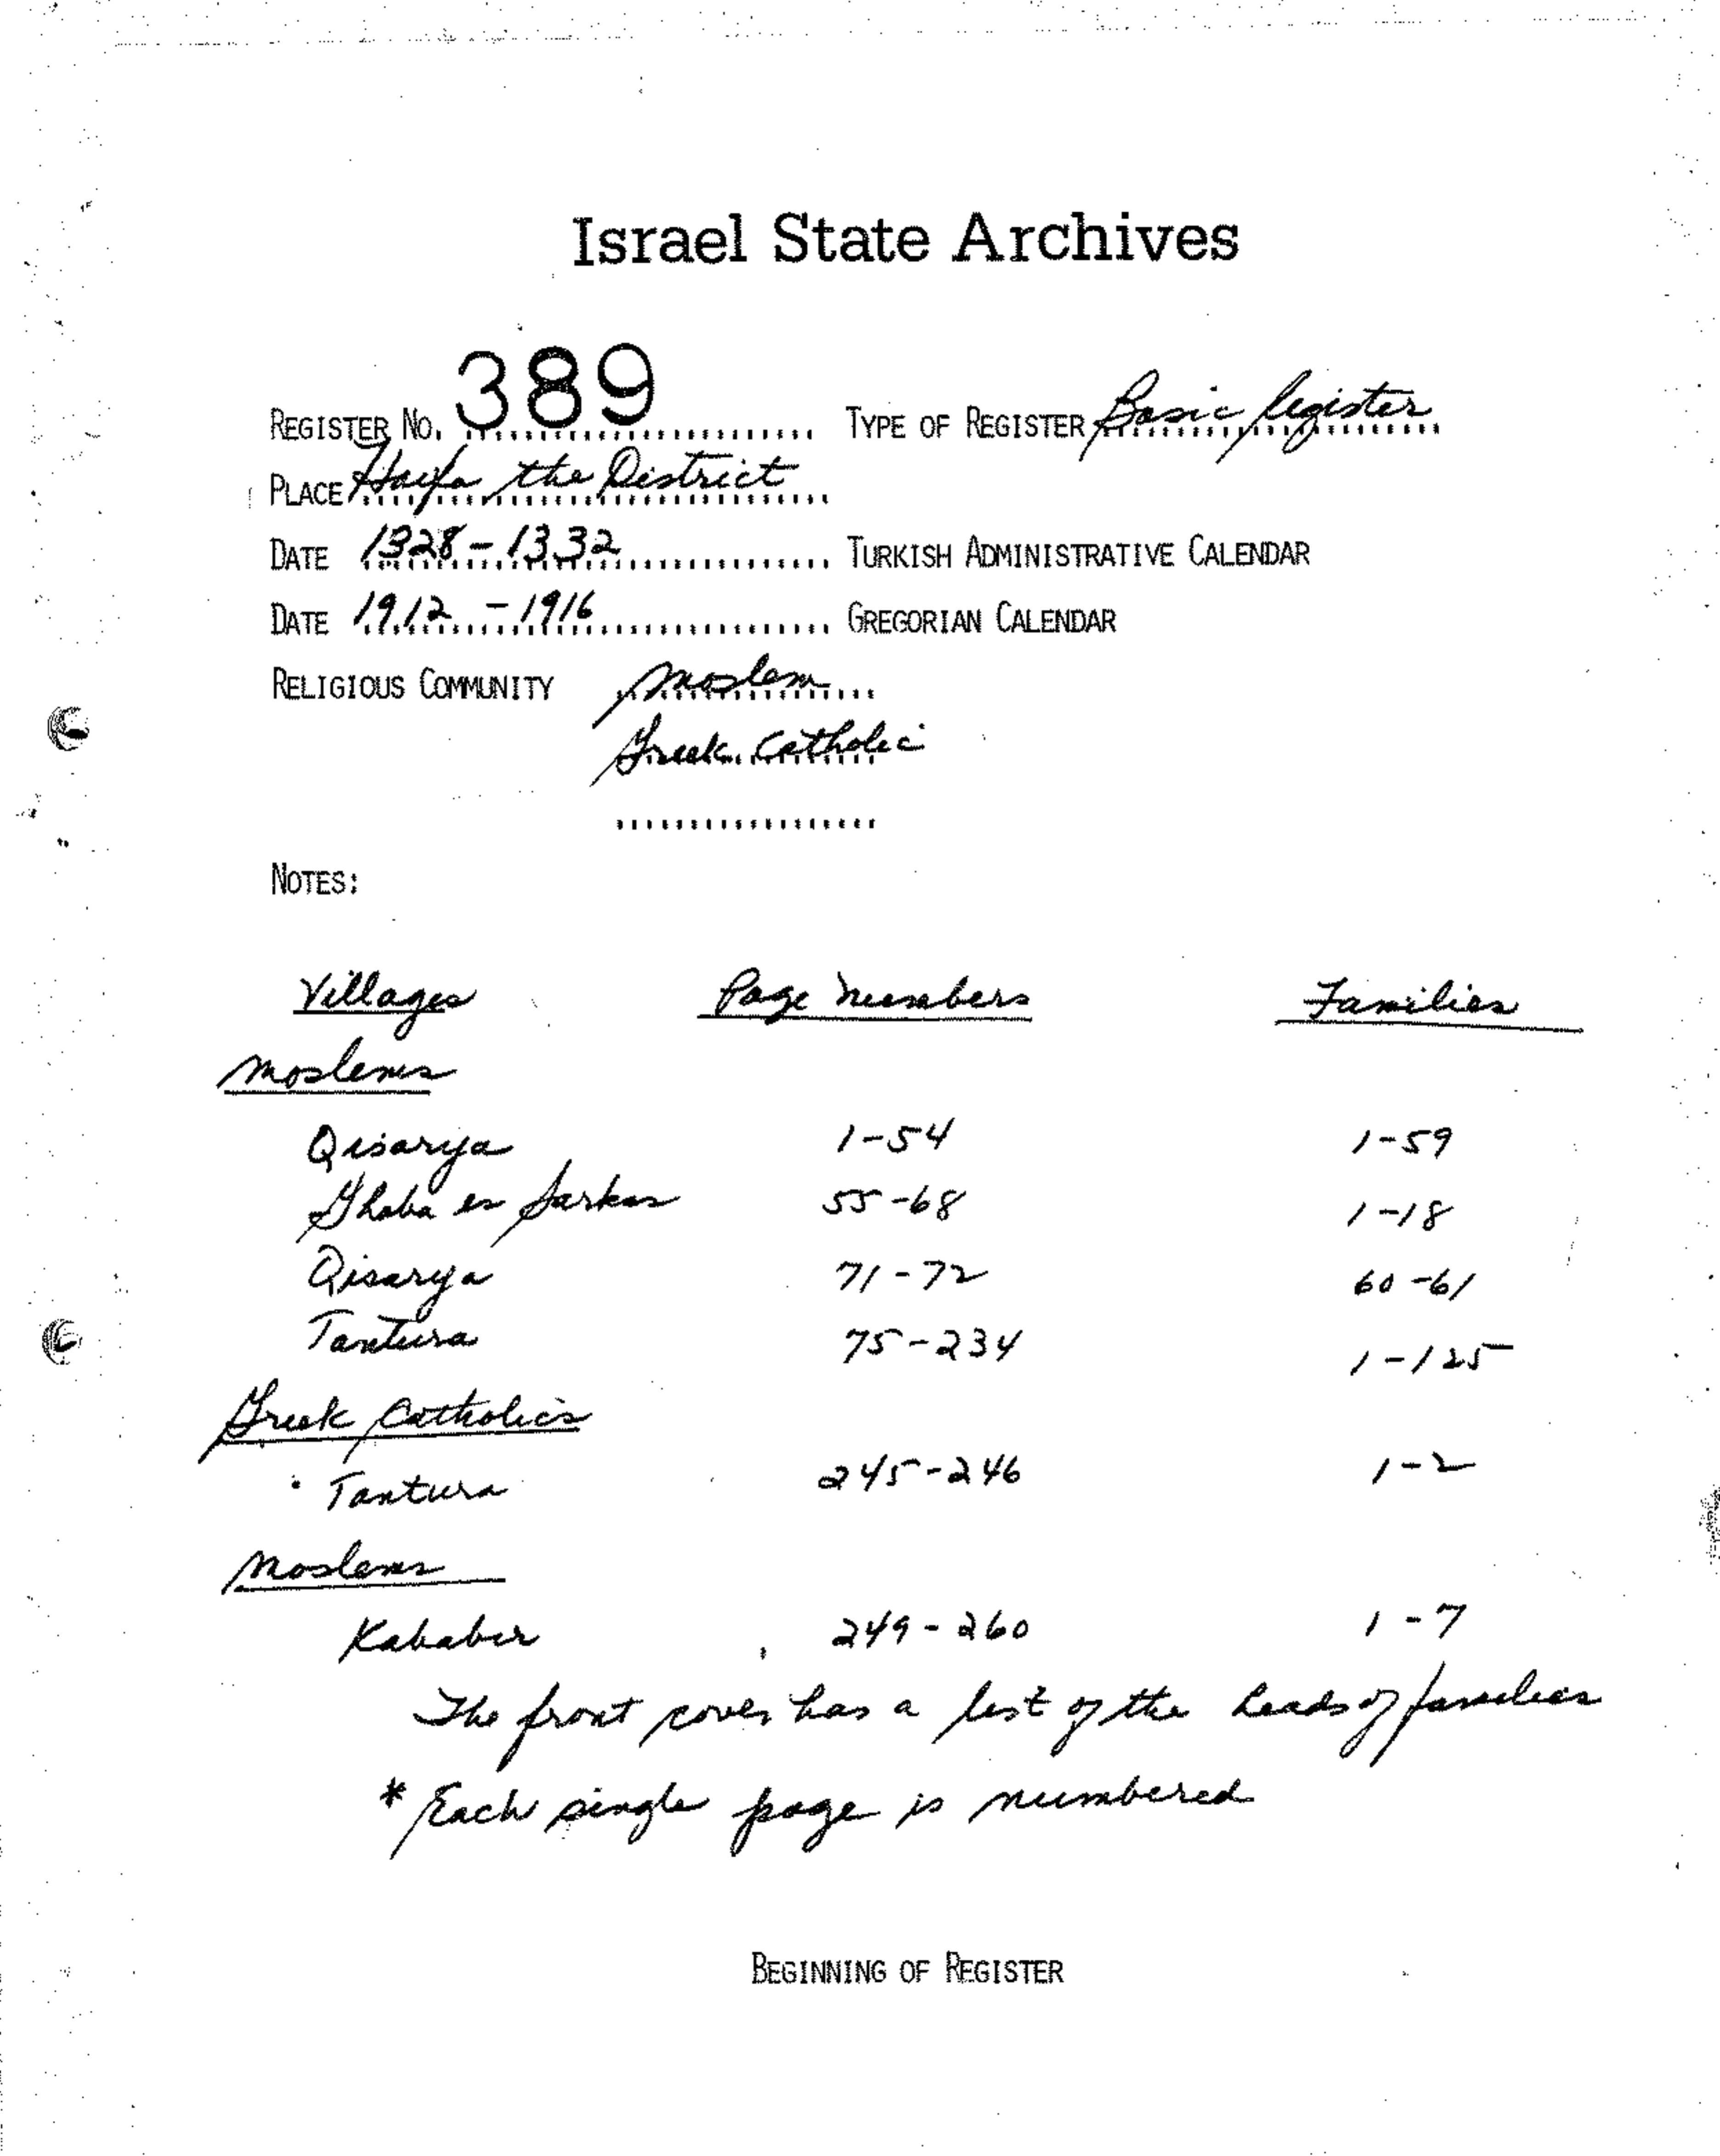 Israel State Archives
REGISTER NO. 389 TYPE OF REGISTER Basic Register
PLACE Haifa the District
DATE 1328-1332 TURKISH ADMINISTRATIVE CALENDAR
DATE 1912-1916 GREGORIAN CALENDAR
RELIGIOUS COMMUNITY Moslem
Greek Catholic
NOTES:
Villages Page Numbers Families
Moslems
Qisarya 1-54 1-59
Ghaba es Sarkas 55-68 1-18
Qisarya 71-72 60-61
Tantura 75-234 1-125
Greek Catholics
Tantura 245-246 1-2
Moslems
Kababir 249-260 1-7
The front cover has a list of the heads of families
* Each single page is numbered
BEGINNING OF REGISTER